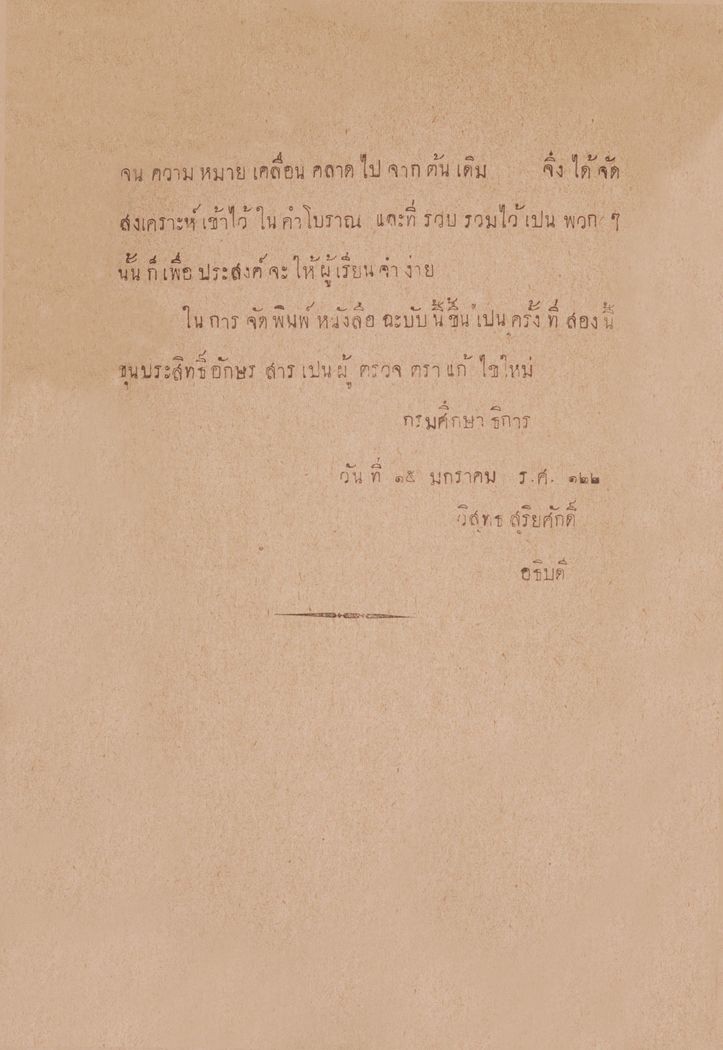 จน ความ หมาย เคลื่อน คลาด ไป จาก ต้น เดิม จึ่ง ได้ จัด
สงเคราะห์ เข้าไว้ ใน คำโบราณ และที่ รวบ รวมไว้ เปน พวก ๆ
นั้น ก็ เพื่อ ประสงค์ จะ ให้ ผู้ เรียน จำ ง่าย
ใน การ จัด พิมพ์ หนังสือ ฉะบับ นี้ ขึ้น เปน ครั้ง ที่ สอง นี้
ขุนประสิทธิ์อักษร สาร เปน ผู้ ตรวจ ตรา แก้ ไขใหม่
กรมศึกษา ธิการ
วัน ที่ ๑๕ มกราคม ร.ศ. ๑๒๒
วิสุทธ สุริยศักดิ์
อธิบดี